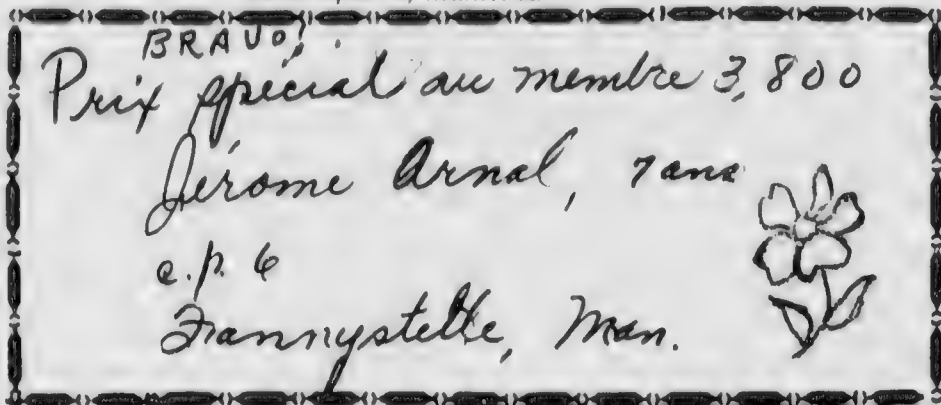 BRAVO!
Prix spécial au membre 3,800
Jérome Arnal, 7 ans
c.p. 6
Fannystelle, Man.